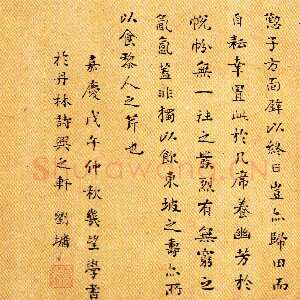 懃子方面壁以終日豈亦歸田而
自耘幸置此於几席養幽芳於
帨帉無一往之發烈有無窮之
氤氳蓋非獨以飲東坡之壽亦所
以食黎人之芹也
嘉慶戊午仲秋幾望學書
於丹林詩興之軒 劉墉
Shufawang.CN